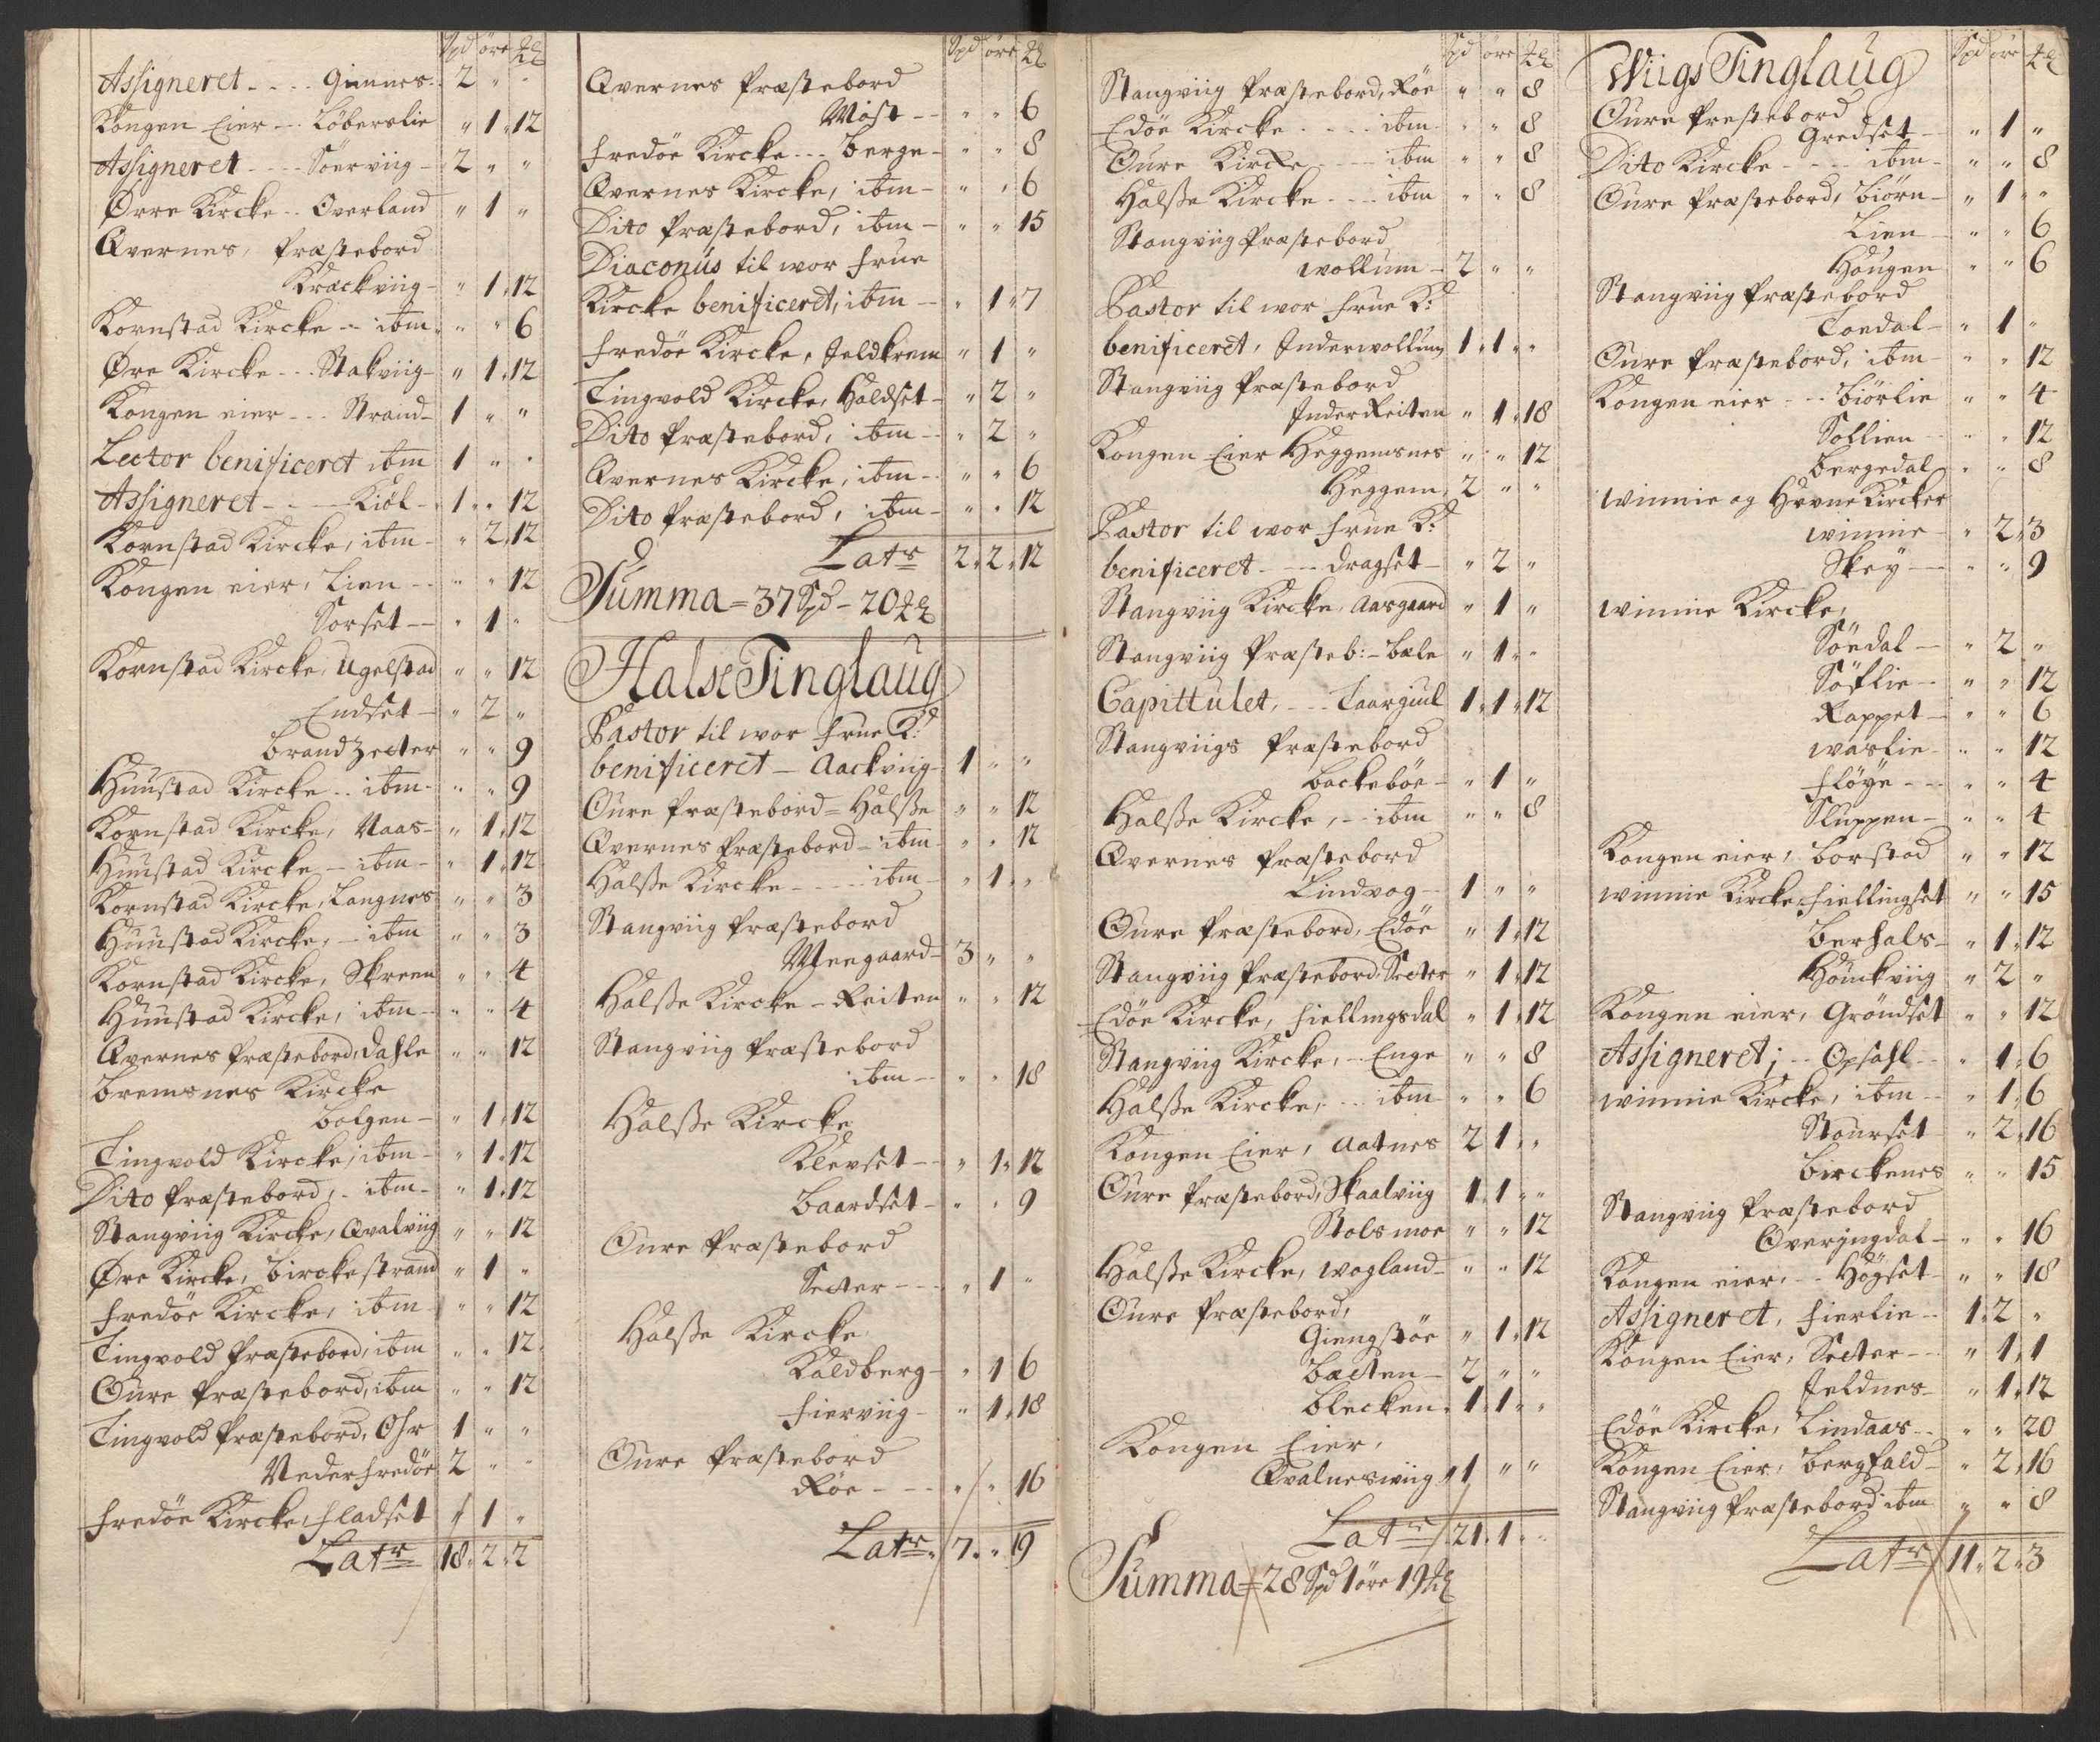 Spd öre ℔
Assigneret - - . . Gimnes - 2 " "
Kongen Eier - - Löberslie " 1 " 12
Assigneret - - - - Söerviig - 2 " "
Ørre Kircke - - Overland " 1 "
Qvernes, Præstebord
Kræckviig - " 1 " 12
Kornstad Kircke - - ibm - " " 6
Øre Kircke - - - Stakviig - " 1 " 12
Kongen eier - - - Strand - 1 " "
Lector benificeret ibm 1 " "
Assigneret - - - - Kiöl - 1 " 12
Kornstad Kircke, ibm - " 2 " 12
Kongen eier, Lien - - " " 12
Sorset - - " 1 "
Kornstad Kircke, Ugelstad " " 12
Endset - " 2 "
brandzecter " " 9
Huustad Kircke - - ibm - " " 9
Kornstad Kircke, Naas - " 1 " 12
Huustad Kircke - ibm - " 1 " 12
Kornstad Kircke, Langnes " " 3
Huustad Kircke, - ibm " " 3
Kornstad Kircke, Skreen " " 4
Huustad Kircke, ibm - " " 4
Qvernes Præstebord, Dahle " " 12
Bremsnes Kircke
bolgen - " 1 " 12
Tingvold Kircke, ibm - " 1 " 12
Dito Præstebord, - ibm - " 1 " 12
Stangviig Kircke, Qvalviig " " 12
Øre Kircke, Birckestrand " 1 "
Fredöe Kircke, ibm - " " 12
Tingvold Præstebord, ibm " " 12
Oure Præstebord, ibm " " 12
Tingvold Præstebord, Ohr 1 " "
Nederfredöe 2 " "
Fredöe Kircke, Fladset " 1 "
Latr 18 " 2 " 2
Spd öre ℔
Qvernes Præstebord
Möst - - " " 6
Fredöe Kircke - - - berge - " " 8
Qvernes Kircke, ibm - " " 6
Dito Præstebord, ibm - " " 15
Diaconus til wor Frue
Kircke benificeret, ibm - - " 1 " 7
Fredöe Kircke, Jeldkrem " 1 "
Tingvold Kircke, Holdset - " 2 "
Dito Præstebord, ibm - - " 2 "
Qvernes Kircke, ibm - - " " 6
Dito Præstebord, ibm - " " 12
Latr 2 " 2 " 12
Summa = 37 Spd - 20 ℔
Halse Tinglaug
Pastor til wor Frue K:
benificeret - Aackviig - 1 " "
Oure Præstebord = Halsse " " 12
Qvernes Præstebord - ibm - " " 12
Halsse Kircke - - - - ibm - " 1 " "
Stangviig Præstebord
Meegaard - 3 " "
Halsse Kircke - Reiten " " 12
Stangviig Præstebord
ibm - - " " 18
Halsse Kircke
Klevset - - " 1 " 12
Baardset - " " 9
Oure Præstebord
Secter - - - " 1 "
Halsse Kircke
Kaldberg - " 1 6
Fierviig - " 1 " 18
Oure Præstebord
Röe - - - " " 16
Latr " 7 " " 19
Spd öre ℔
Stangviig Præstebord, Röe " " 8
Edöe Kircke - - - - ibm - " " 8
Oure Kircke - - - ibm " " 8
Halsse Kircke - - - ibm " " 8
Stangviig Præstebord
wollum - 2 " "
Pastor til wor Frue K:
benificeret, Inderwollum 1 " 1 " "
Stangviig Præstebord
Inder Reiten " 1 " 18
Kongen Eier Heggemsnes " " 12
Heggem, 2 " "
Pastor til wor Frue K:
benificeret - - - Dragset - " 2 "
Stangviig Kircke, Aasgaard " 1 "
Stangviig Præsteb: - Bæle " 1 " "
Capittulet, - - - Taarguul 1 " 1 " 12
Stangviigs Præstebord
Backeböe - " 1 "
Halsse Kircke, - ibm " " 8
Qvernes Præstebord
Lindvog - 1 " "
Oure Præstebord, Edöe " 1 " 12
Stangviig Præstebord, Secter " 1 " 12
Edöe Kircke, Fiellingsdal " 1 " 12
Stangviig Kircke, - Enge " " 8
Halsse Kircke, - - ibm " " 6
Kongen Eier, Aatnes 2 1 " "
Oure Præstebord, Skaalviig 1 " 1 " "
Stolsmoe " " 12
Halsse Kircke, wogland - " " 12
Oure Præstebord,
Giengstöe " 1 " 12
Bæcten - 2 " "
Blecken " 1 " 1 " "
Kongen Eier,
Qvalneswiig " 1 " "
Latr 21 " 1 " "
Summa = 28 Spd 1 öre 19 ℔
Spd öre ℔
Wiigs Tinglaug
Oure Prestebord
Gredset - " 1 "
Dito Kircke - - - - ibm - " " 8
Oure Præstebord, Biörn - " 1 " "
Lien - " " 6
Hougen " " 6
Stangviig Præstebord
Toedal - " 1 "
Oure Præstebord, ibm - " " 12
Kongen eier - - Biörlie " " 4
Sollien - - " " 12
Bergedal " " 8
winnie og Hevne Kircker
winnie - " 2 " 3
Skey - - " " 9
winnie Kircke,
Söndal - " 2 "
Söflie - - " " 12
Rappet - " " 6
waslie - " " 12
Flöye - - " " 4
Sluppen - " " 4
Kongen eier, Borstad " " 12
winnie Kircke, Fiellingset " " 15
Berhals - " 1 " 12
Houckviig " 2 "
Kongen eier, Gröndset " " 12
Assigneret; - - Opsahl - - " 1 " 6
winnie Kircke, ibm - - " 1 " 6
Stourset " 2 " 16
Birckenes " " 15
Stangviig Præstebord
Overjngdal - " " 16
Kongen eier, - - Högset - " " 18
Assigneret, Fierlie - - 1 " 2 "
Kongen Eier, Secter - - " 1 " 1
Jeldnes - " 1 " 12
Edöe Kircke, Lindaas - - " " 20
Kongen Eier, Bergfald - " 2 " 16
Stangviig Præstebord ibm " " 8
Latr 11 " 2 " 3